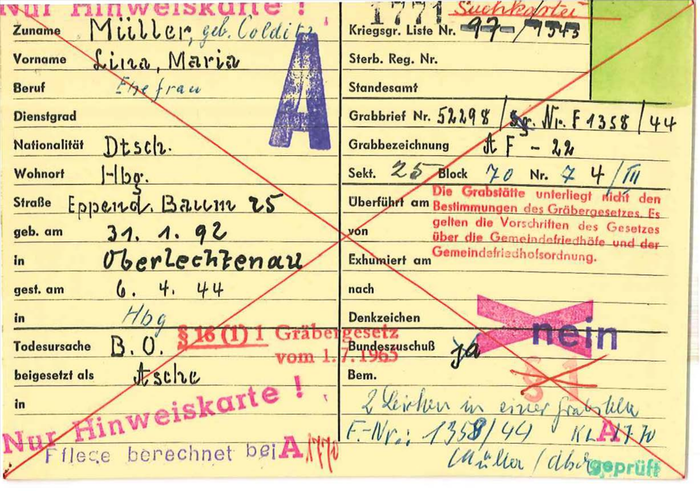 Nur Hinweiskarte !
Zuname Müller, geb. Colditz
Vorname Lina, Maria
Beruf Ehefrau
Dienstgrad
Nationalität Dtsch.
Wohnort Hbg.
Straße Eppend. Baum 25
geb. am 31. 1. 92
in Oberlechtenau
gest. am 6. 4. 44
in Hbg
Todesursache B. O.
beigesetzt als Asche
in
A
§ 16 (1) 1 Gräbergesetz
vom 1.7.1965
Nur Hinweiskarte !
Pflege berechnet bei A 1770
1771 Suchkartei
Kriegsgr. Liste Nr. 97 / 1343
Sterb. Reg. Nr.
Standesamt
Grabbrief Nr. 52298 / Nr. F 1358 / 44
Grabbezeichnung A F - 22
Sekt. 25 Block 70 Nr. 7 4 / III
Die Grabstätte unterliegt nicht den
Bestimmungen des Gräbergesetzes. Es
gelten die Vorschriften des Gesetzes
über die Gemeindefriedhöfe und der
Gemeindefriedhofsordnung.
Überführt am
von
Exhumiert am
nach
Denkzeichen
Bundeszuschuß ja nein
Bem.
2 Leichen in einer Grabstelle
F.-Nr.: 1358/44 KL A 1770
Müller
geprüft